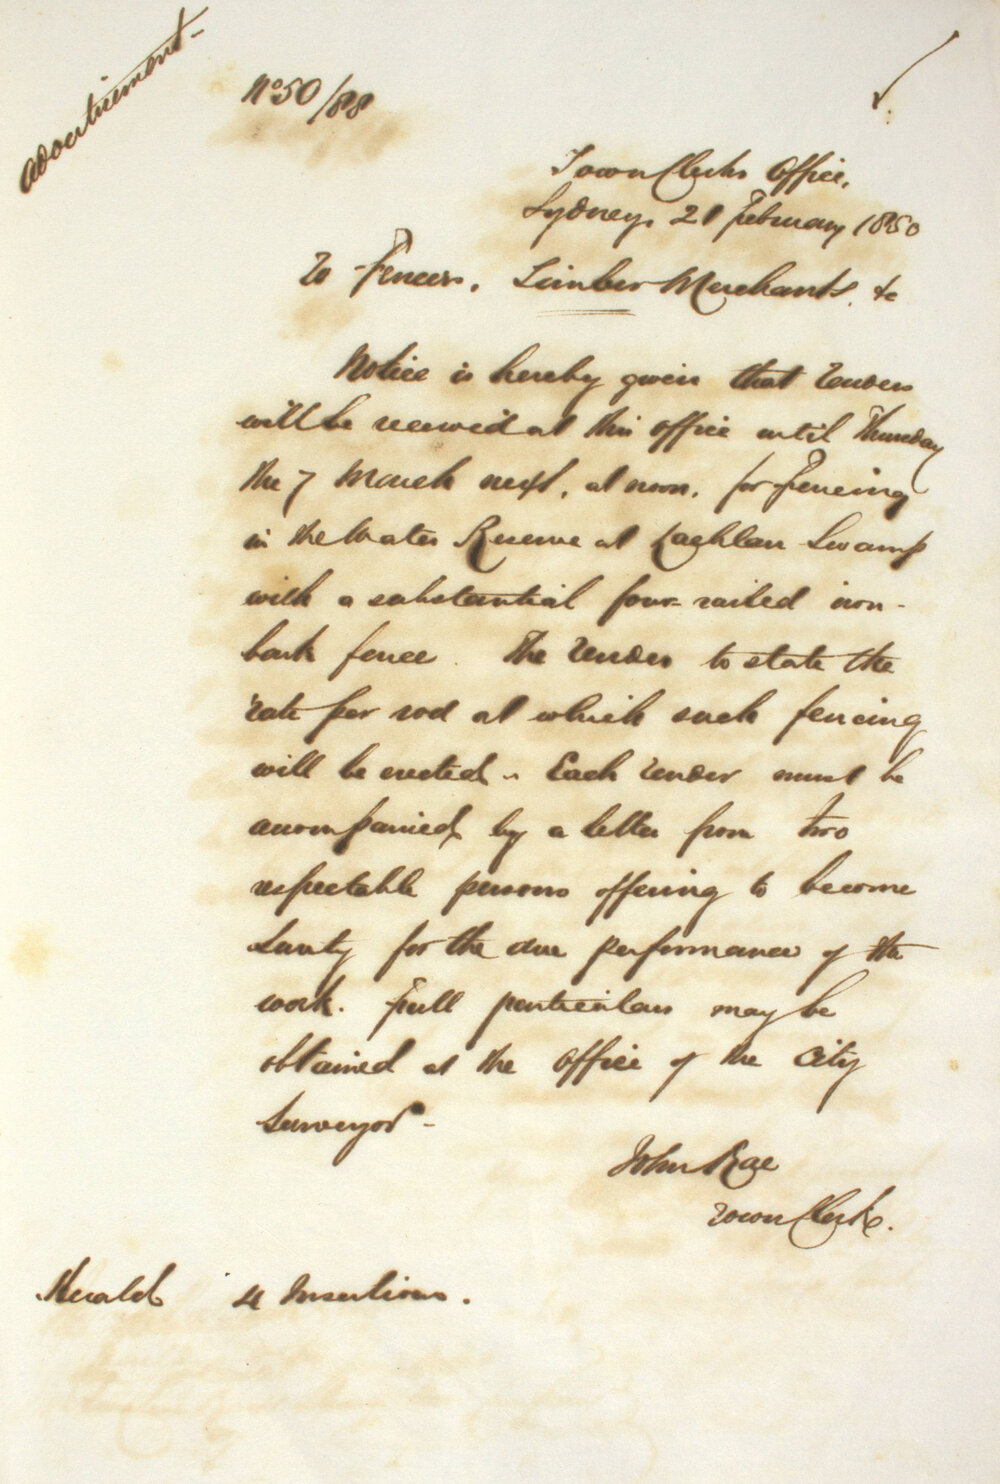 Advertisement -
No 50/88
Town Clerks Office,
Sydney, 21 February 1850
To Fencers, Timber Merchants, &c
Notice is hereby given that Tenders
will be received at this office until Thursday
the 7 March next, at noon, for Fencing
in the Water Reserve at Lachlan Swamp
with a substantial four-railed iron-
bark fence. The Tender to state the
rate per rod at which such fencing
will be erected - Each Tender must be
accompanied by a letter from two
respectable persons offering to become
surety for the due performance of the
work. Full particulars may be
obtained at the office of the City
Surveyor -
John Rae
Town Clerk.
Herald 4 Insertions.